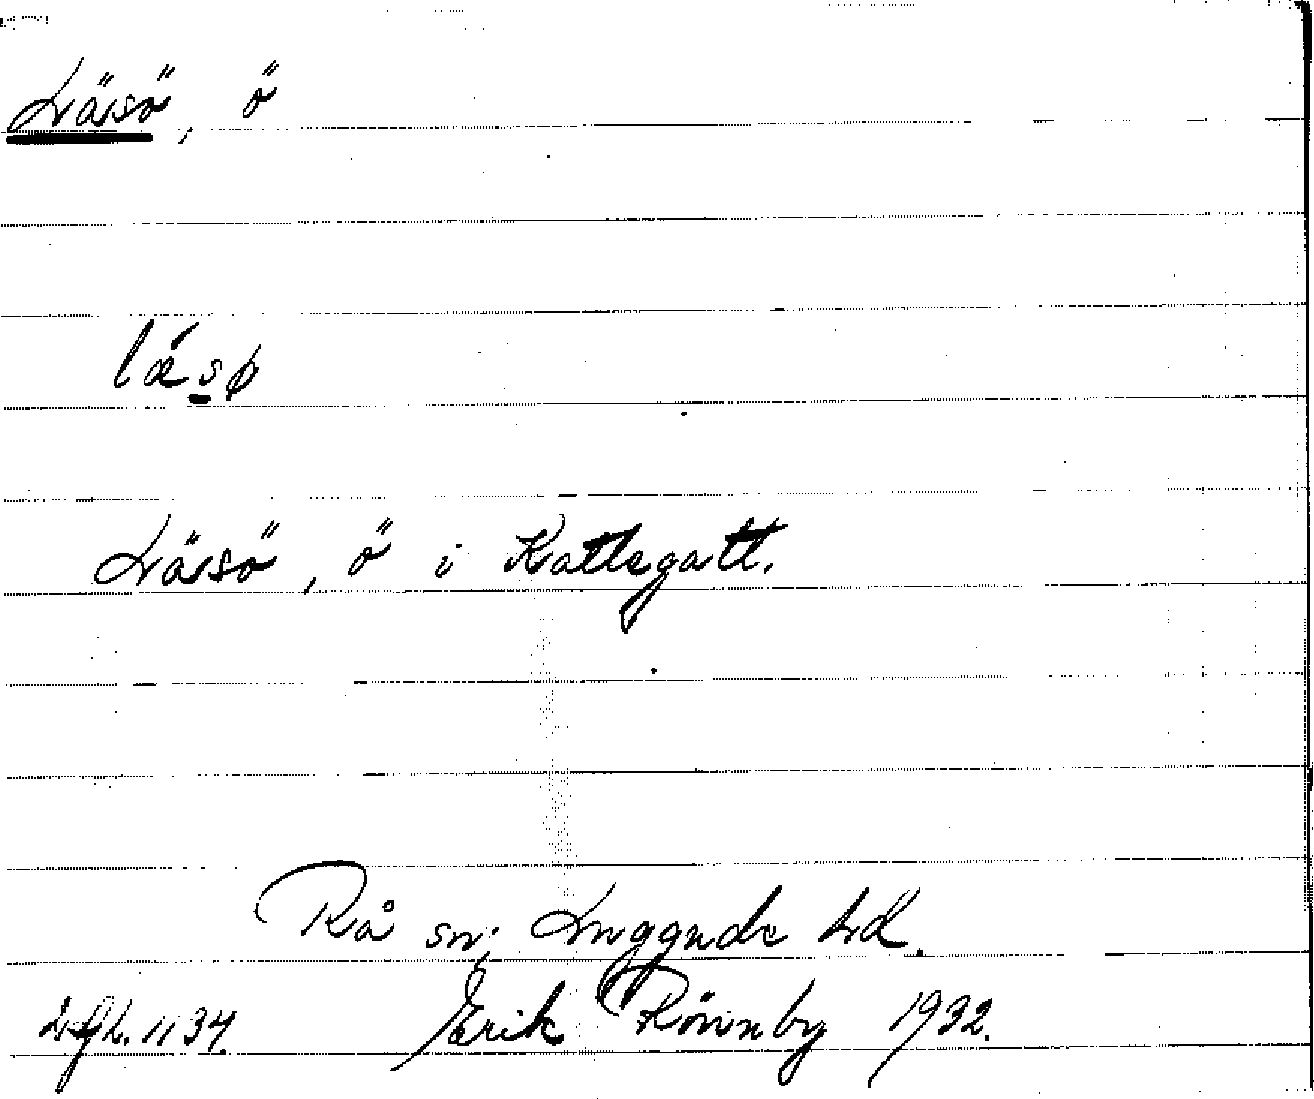 Läsö, ö
läsø
Läsö, ö i Kattegatt.
Rå sn; Luggude hd.
1134. Erik Rönnby 1932.